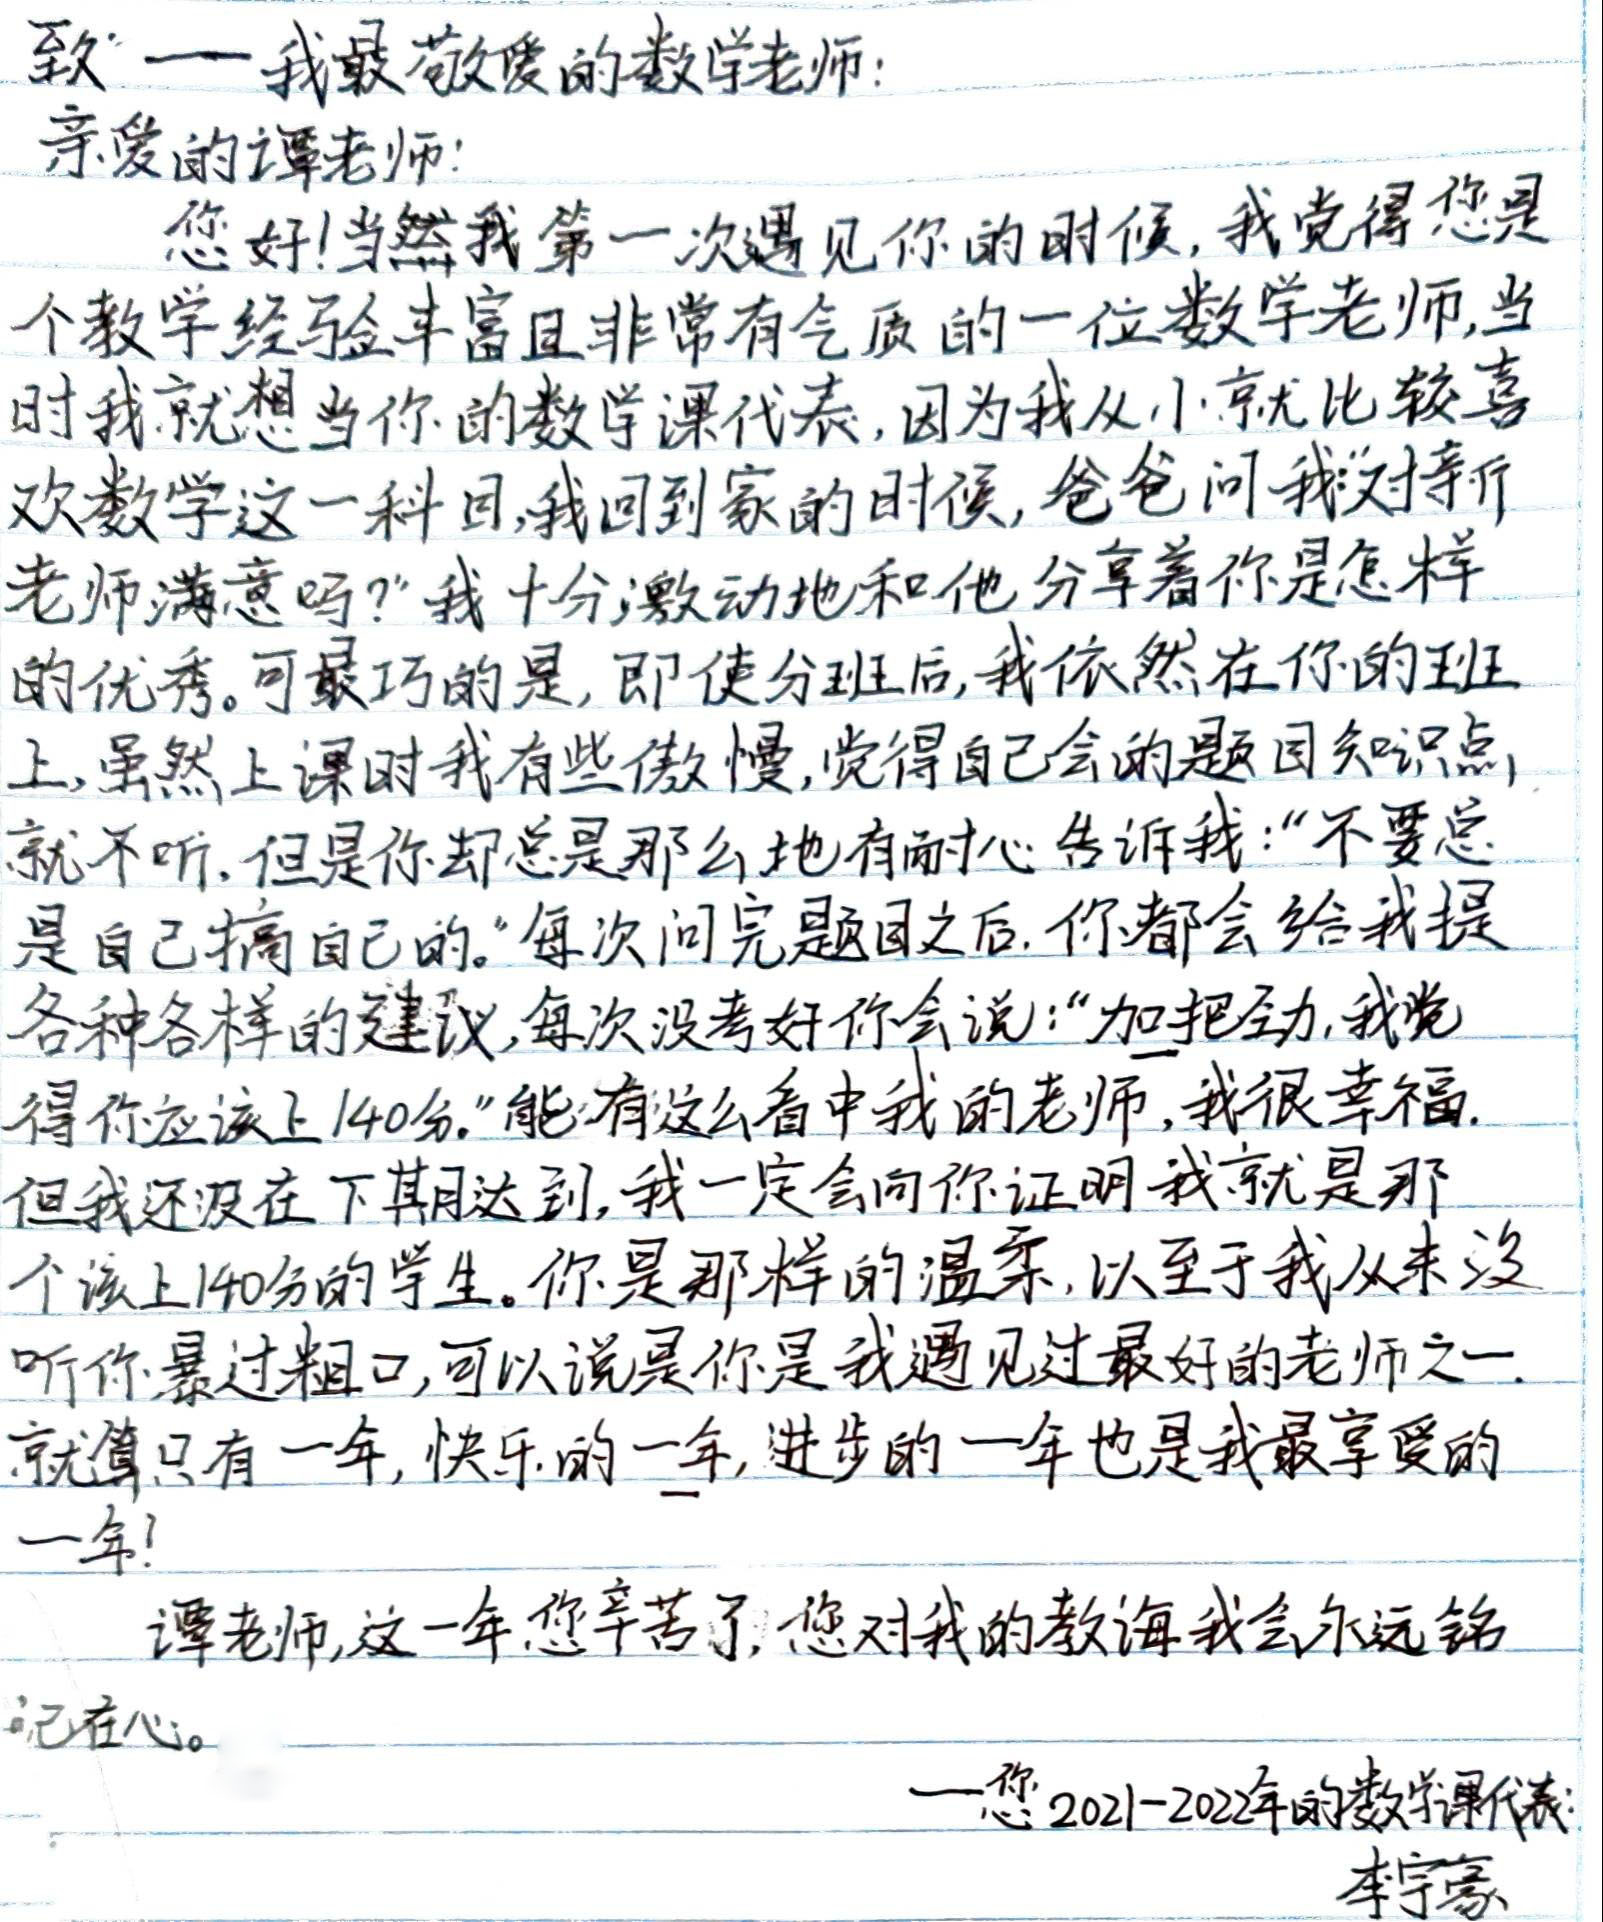 致——我最敬爱的数学老师:
亲爱的谭老师:
您好!当然我第一次遇见你的时候,我觉得您是
个教学经验丰富且非常有气质的一位数学老师,当
时我就想当你的数学课代表,因为我从小就比较喜
欢数学这一科目,我回到家的时候,爸爸问我:“对新
老师满意吗?”我十分激动地和他分享着你是怎样
的优秀。可最巧的是,即使分班后,我依然在你的班
上,虽然上课时我有些傲慢,觉得自己会的题目知识点,
就不听.但是你却总是那么地有耐心告诉我:“不要总
是自己搞自己的。”每次问完题目之后.你都会给我提
各种各样的建议,每次没考好你会说:“加把劲,我觉
得你应该上140分.”能有这么看中我的老师,我很幸福.
但我还没在下期达到,我一定会向你证明我就是那
个该上140分的学生。你是那样的温柔,以至于我从来没
听你暴过粗口,可以说是你是我遇见过最好的老师之一.
就算只有一年,快乐的一年,进步的一年也是我最享受的
一年!
谭老师,这一年您辛苦了,您对我的教诲我会永远铭
记在心。
——您2021-2022年的数学课代表:
李宇豪